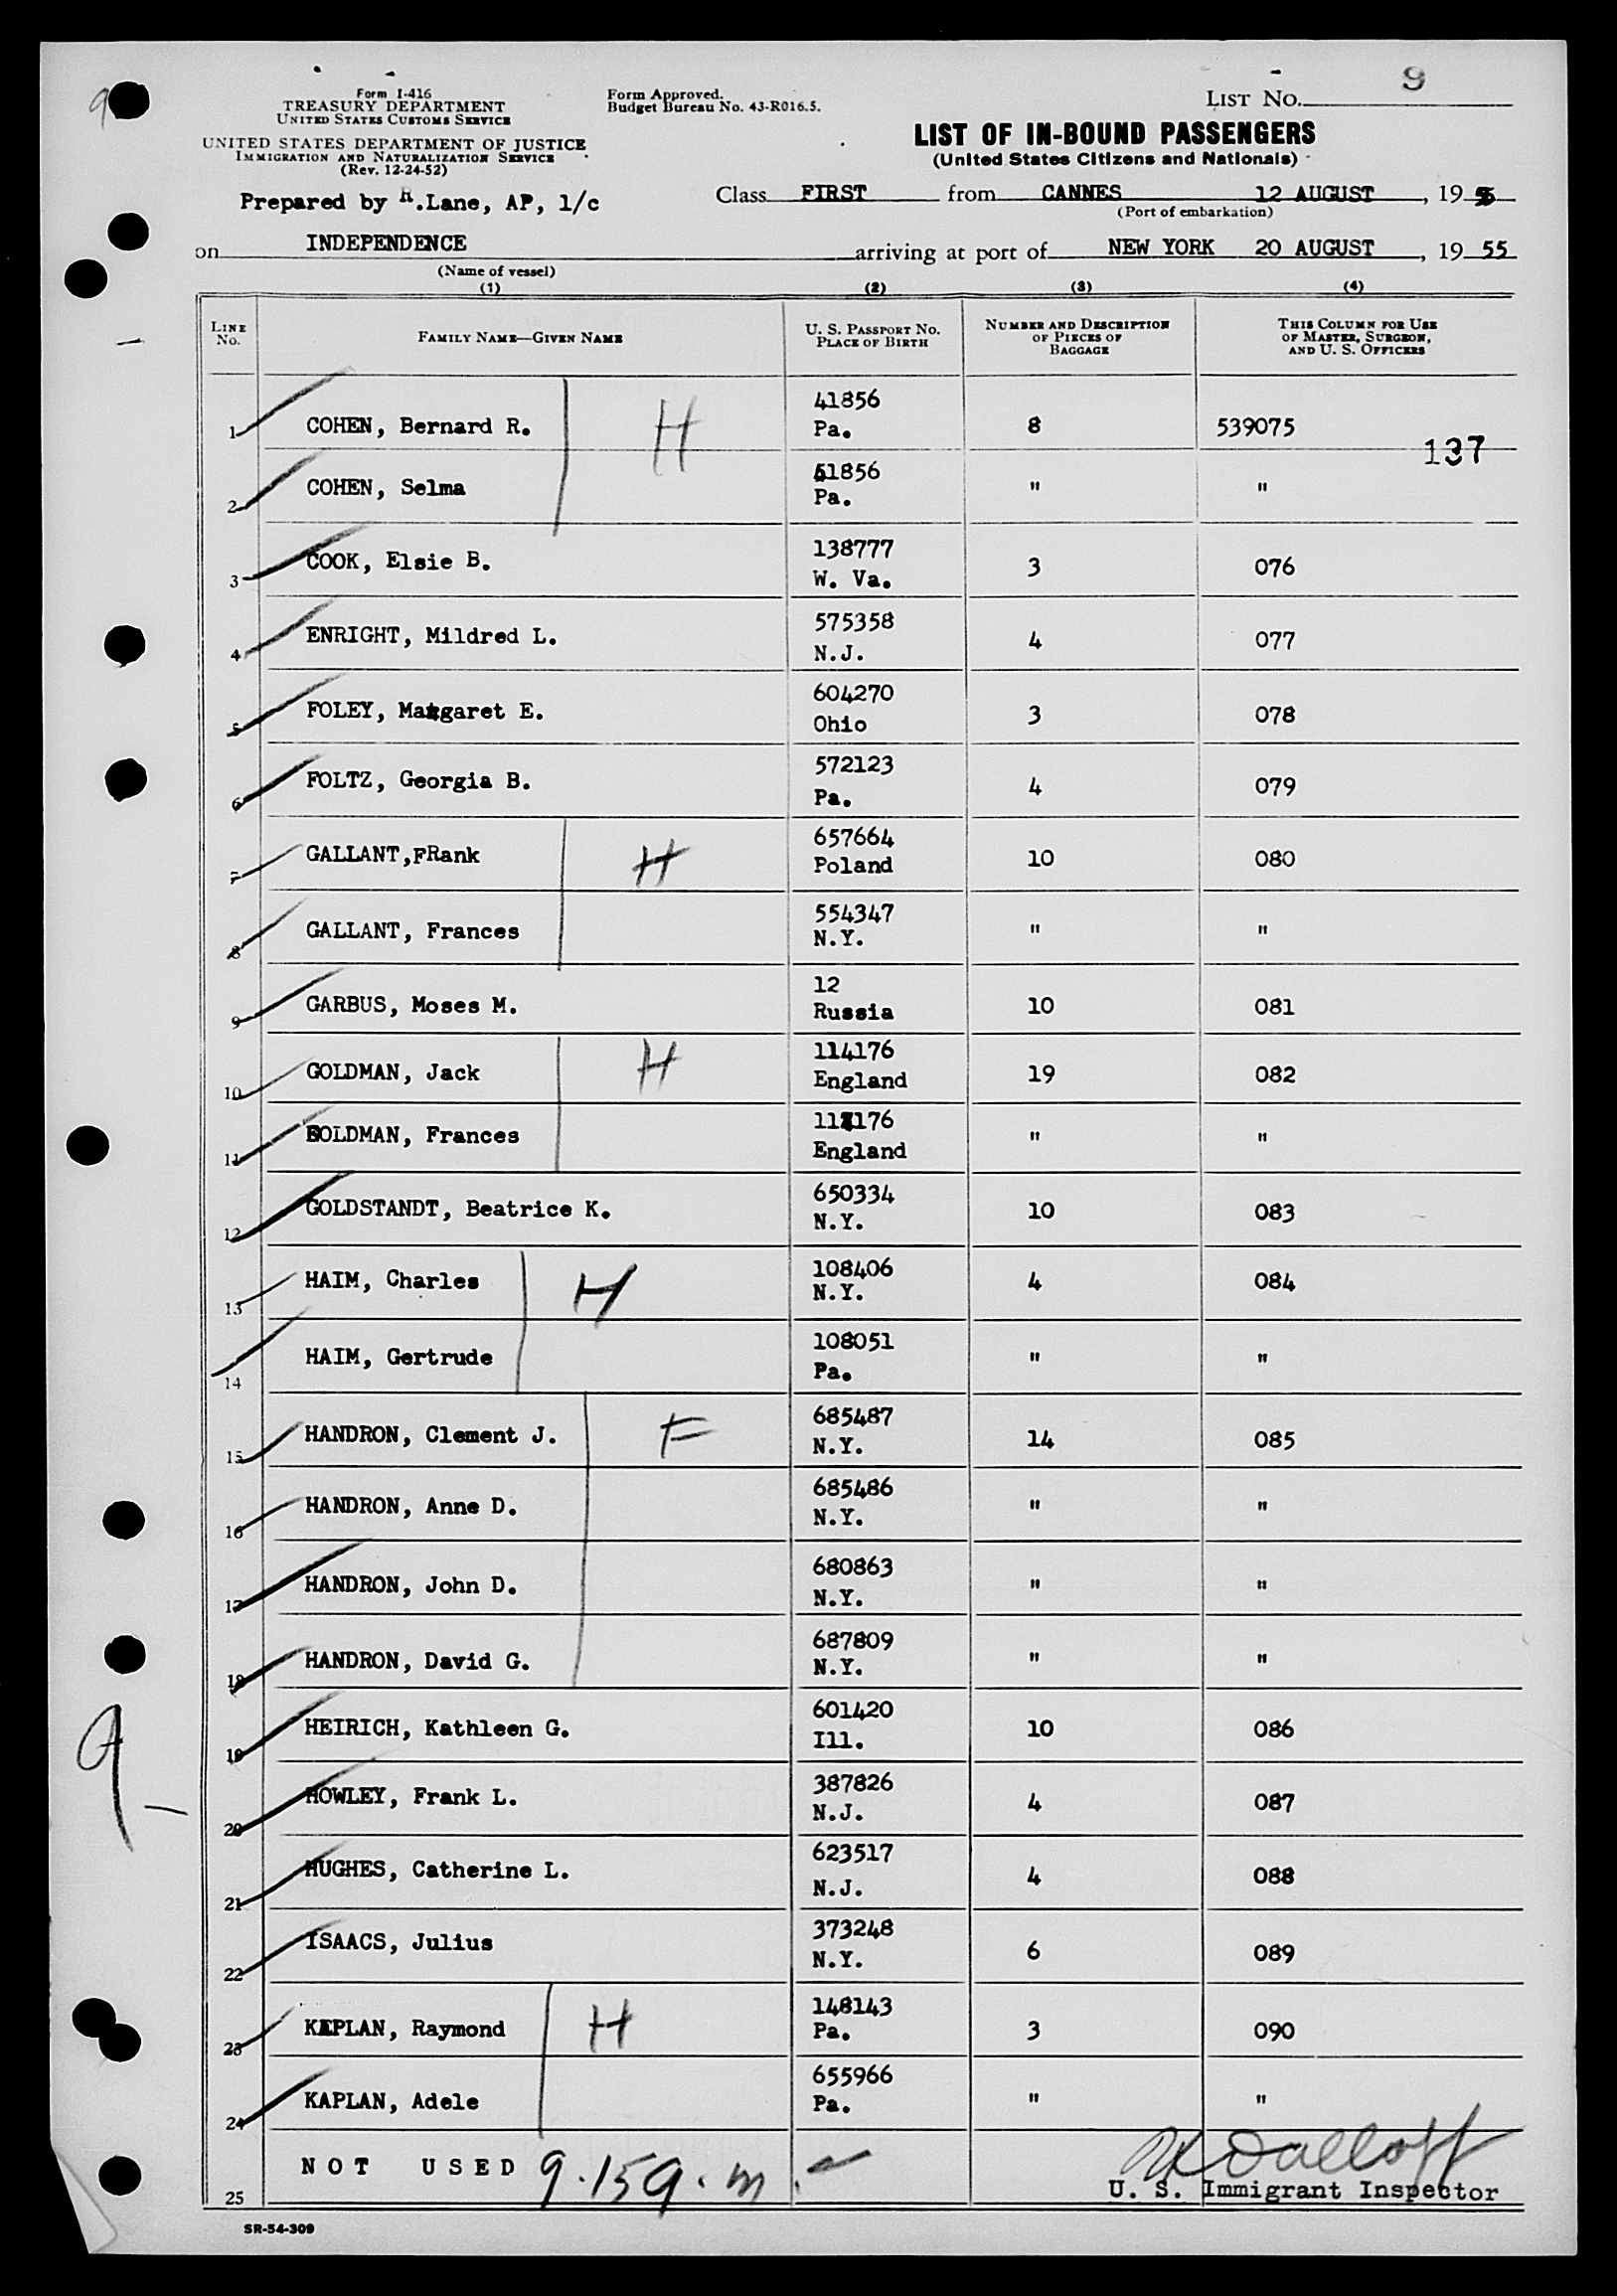 9
Form I-416
TREASURY DEPARTMENT
UNITED STATES CUSTOMS SERVICE
UNITED STATES DEPARTMENT OF JUSTICE
IMMIGRATION AND NATURALIZATION SERVICE
(Rev. 12-24-52)
Form Approved.
Budget Bureau No. 43-R016.5.
LIST NO. 9
LIST OF IN-BOUND PASSENGERS
(United States Citizens and Nationals)
Prepared by R.Lane, AP, 1/c
Class FIRST from CANNES 12 AUGUST, 195
(Port of embarkation)
on INDEPENDENCE arriving at port of NEW YORK 20 AUGUST, 19 55
(Name of vessel)
(1) (2) (3) (4)
LINE NO. FAMILY NAME—GIVEN NAME U. S. PASSPORT NO. PLACE OF BIRTH NUMBER AND DESCRIPTION OF PIECES OF BAGGAGE THIS COLUMN FOR USE OF MASTER, SURGEON, AND U. S. OFFICERS
41856
1 COHEN, Bernard R. H Pa. 8 539075
137
1856
2 COHEN, Selma Pa. " "
138777
3 COOK, Elsie B. W. Va. 3 076
575358
4 ENRIGHT, Mildred L. N.J. 4 077
604270
5 FOLEY, Margaret E. Ohio 3 078
572123
6 FOLTZ, Georgia B. Pa. 4 079
657664
7 GALLANT,FRank H Poland 10 080
554347
8 GALLANT, Frances N.Y. " "
12
9 GARBUS, Moses M. Russia 10 081
114176
10 GOLDMAN, Jack H England 19 082
11 176
11 GOLDMAN, Frances England " "
650334
12 GOLDSTANDT, Beatrice K. N.Y. 10 083
108406
13 HAIM, Charles H N.Y. 4 084
108051
14 HAIM, Gertrude Pa. " "
685487
15 HANDRON, Clement J. F N.Y. 14 085
685486
16 HANDRON, Anne D. N.Y. " "
680863
17 HANDRON, John D. N.Y. " "
687809
18 HANDRON, David G. N.Y. " "
601420
19 HEIRICH, Kathleen G. Ill. 10 086
387826
20 HOWLEY, Frank L. N.J. 4 087
623517
21 HUGHES, Catherine L. N.J. 4 088
373248
22 ISAACS, Julius N.Y. 6 089
148143
23 KAPLAN, Raymond H Pa. 3 090
655966
24 KAPLAN, Adele Pa. " "
9
25 NOT USED 9.159.m.
U. S. Immigrant Inspector
SR-54-309